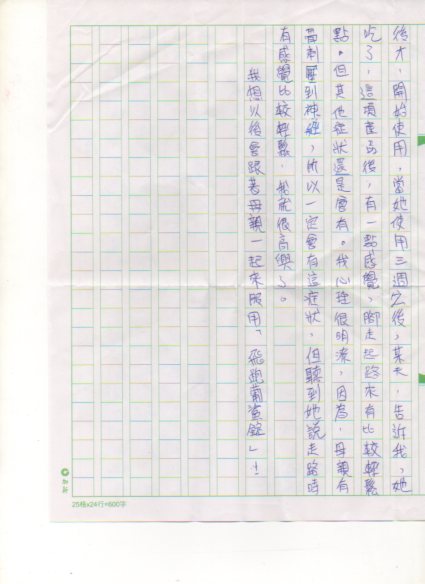 後才,開始使用,當她使用三週之後,某天,告訴我,她
吃了,這項產品後,有一點感覺,腳走起路來有比較輕鬆
點。但其他症狀還是會有。我心理很明瞭,因為,母親有
骨刺壓到神經,所以一定會有這症狀,但聽到她說走路時
有感覺比較輕鬆,我就很高興了。
我想以後會跟著母親一起來服用「飛跑葡萄錠」!
25格x24行=600字